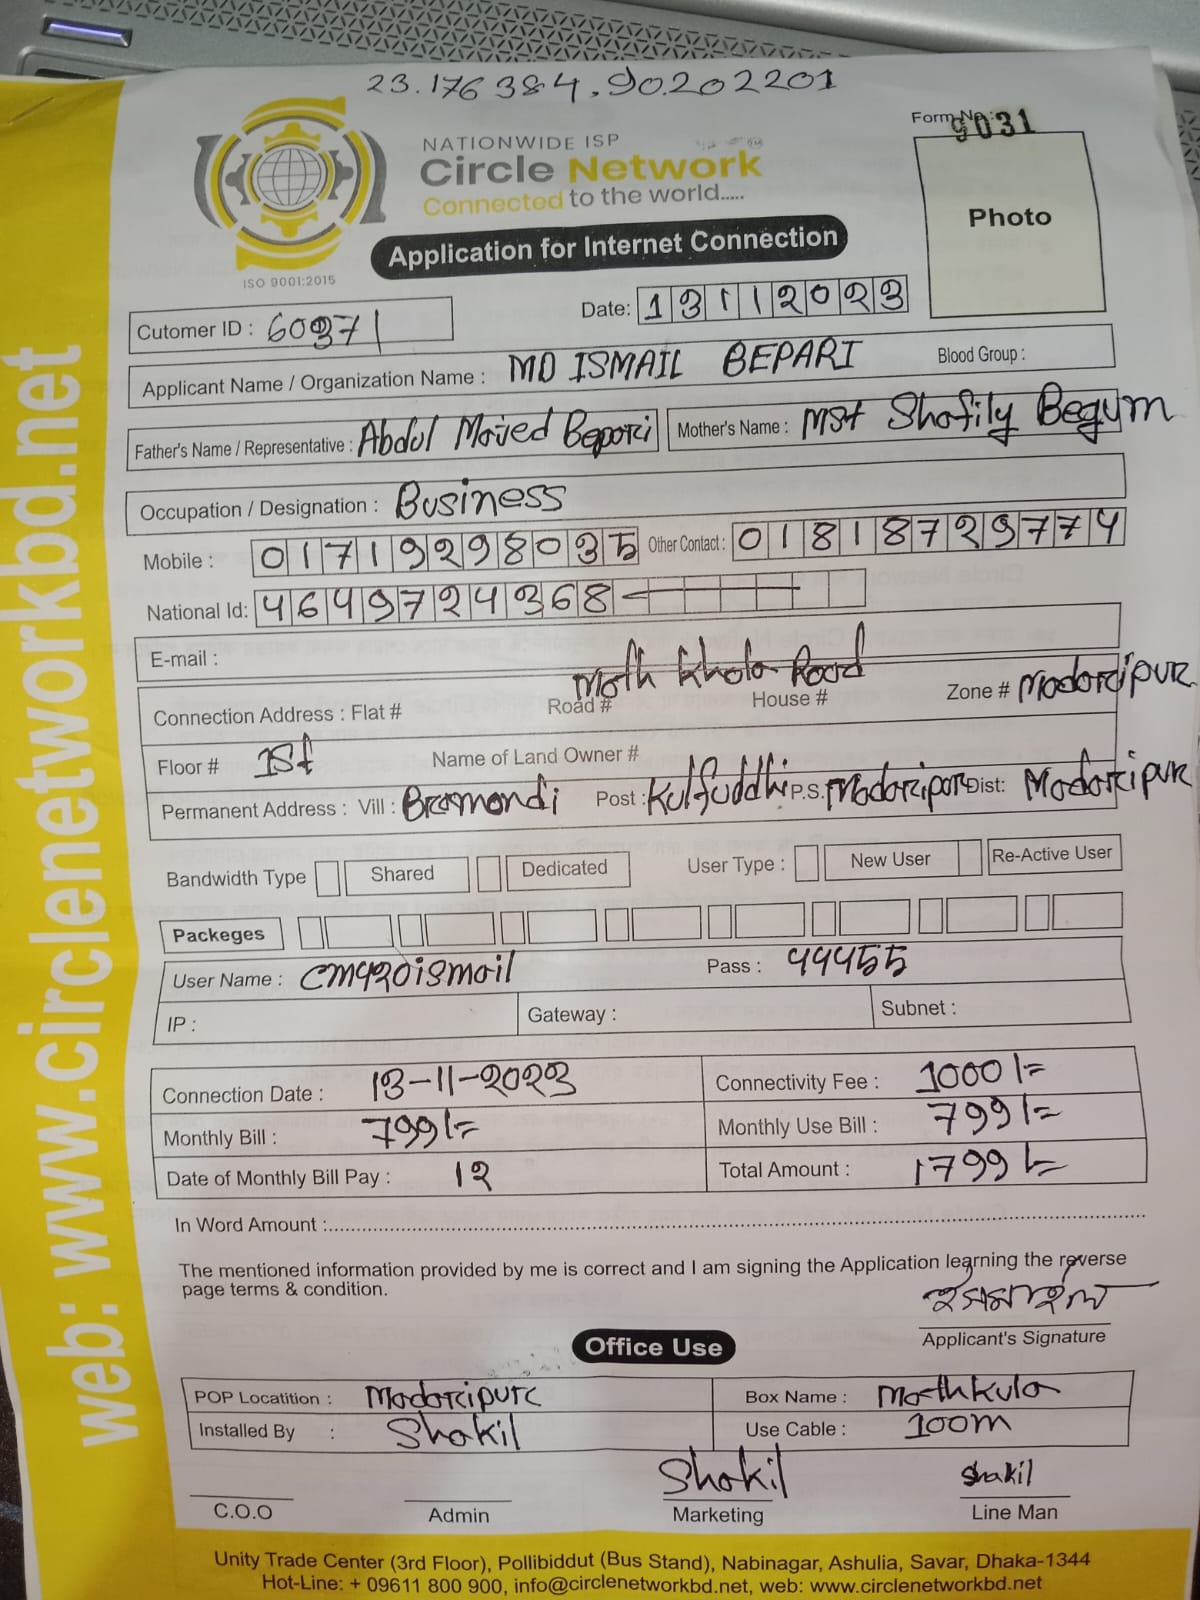 23.176384, 90.202201
Form No.: 9031
NATIONWIDE ISP
Circle Network
Connected to the world.....
Photo
Application for Internet Connection
ISO 9001:2015
Date: 13112023
Cutomer ID : 60371
Applicant Name / Organization Name : MD ISMAIL BEPARI Blood Group :
Father's Name / Representative : Abdul Majed Bepari Mother's Name : MST Shafily Begum
Occupation / Designation : Business
Mobile : 01719298035 Other Contact : 01818729774
National Id: 4649724368
E-mail :
Connection Address : Flat # Road # Math Khola Road House # Zone # Madaripur
Floor # 1st Name of Land Owner #
Permanent Address : Vill : Bramondi Post : Kulfuddhi P.S. Madaripur Dist: Madaripur
Bandwidth Type Shared Dedicated User Type : New User Re-Active User
Packeges
User Name : cm420ismail Pass : 44455
IP : Gateway : Subnet :
Connection Date : 13-11-2023 Connectivity Fee : 1000/=
Monthly Bill : 799/= Monthly Use Bill : 799/=
Date of Monthly Bill Pay : 12 Total Amount : 1799/=
In Word Amount :
The mentioned information provided by me is correct and I am signing the Application learning the reverse
page terms & condition.
ইসমাইল
Applicant's Signature
Office Use
POP Locatition : Madaripur Box Name : Mathkula
Installed By : Shakil Use Cable : 100m
Shakil shakil
C.O.O Admin Marketing Line Man
Unity Trade Center (3rd Floor), Pollibiddut (Bus Stand), Nabinagar, Ashulia, Savar, Dhaka-1344
Hot-Line: + 09611 800 900, info@circlenetworkbd.net, web: www.circlenetworkbd.net
web: www.circlenetworkbd.net